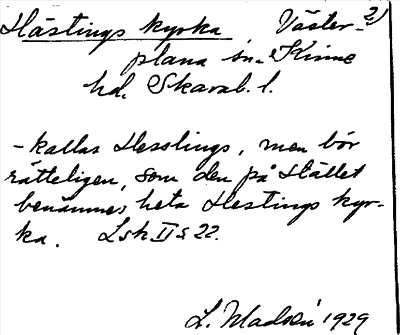 Hästings kyrka, Väster- 2)
plana sn. Kinne
hd. Skarab. l.
-kallas Hesslings, men bör
rätteligen, som den på Stället
benämnes, heta Hestings kyr-
ka. Lsk II s 22.
L. 1929